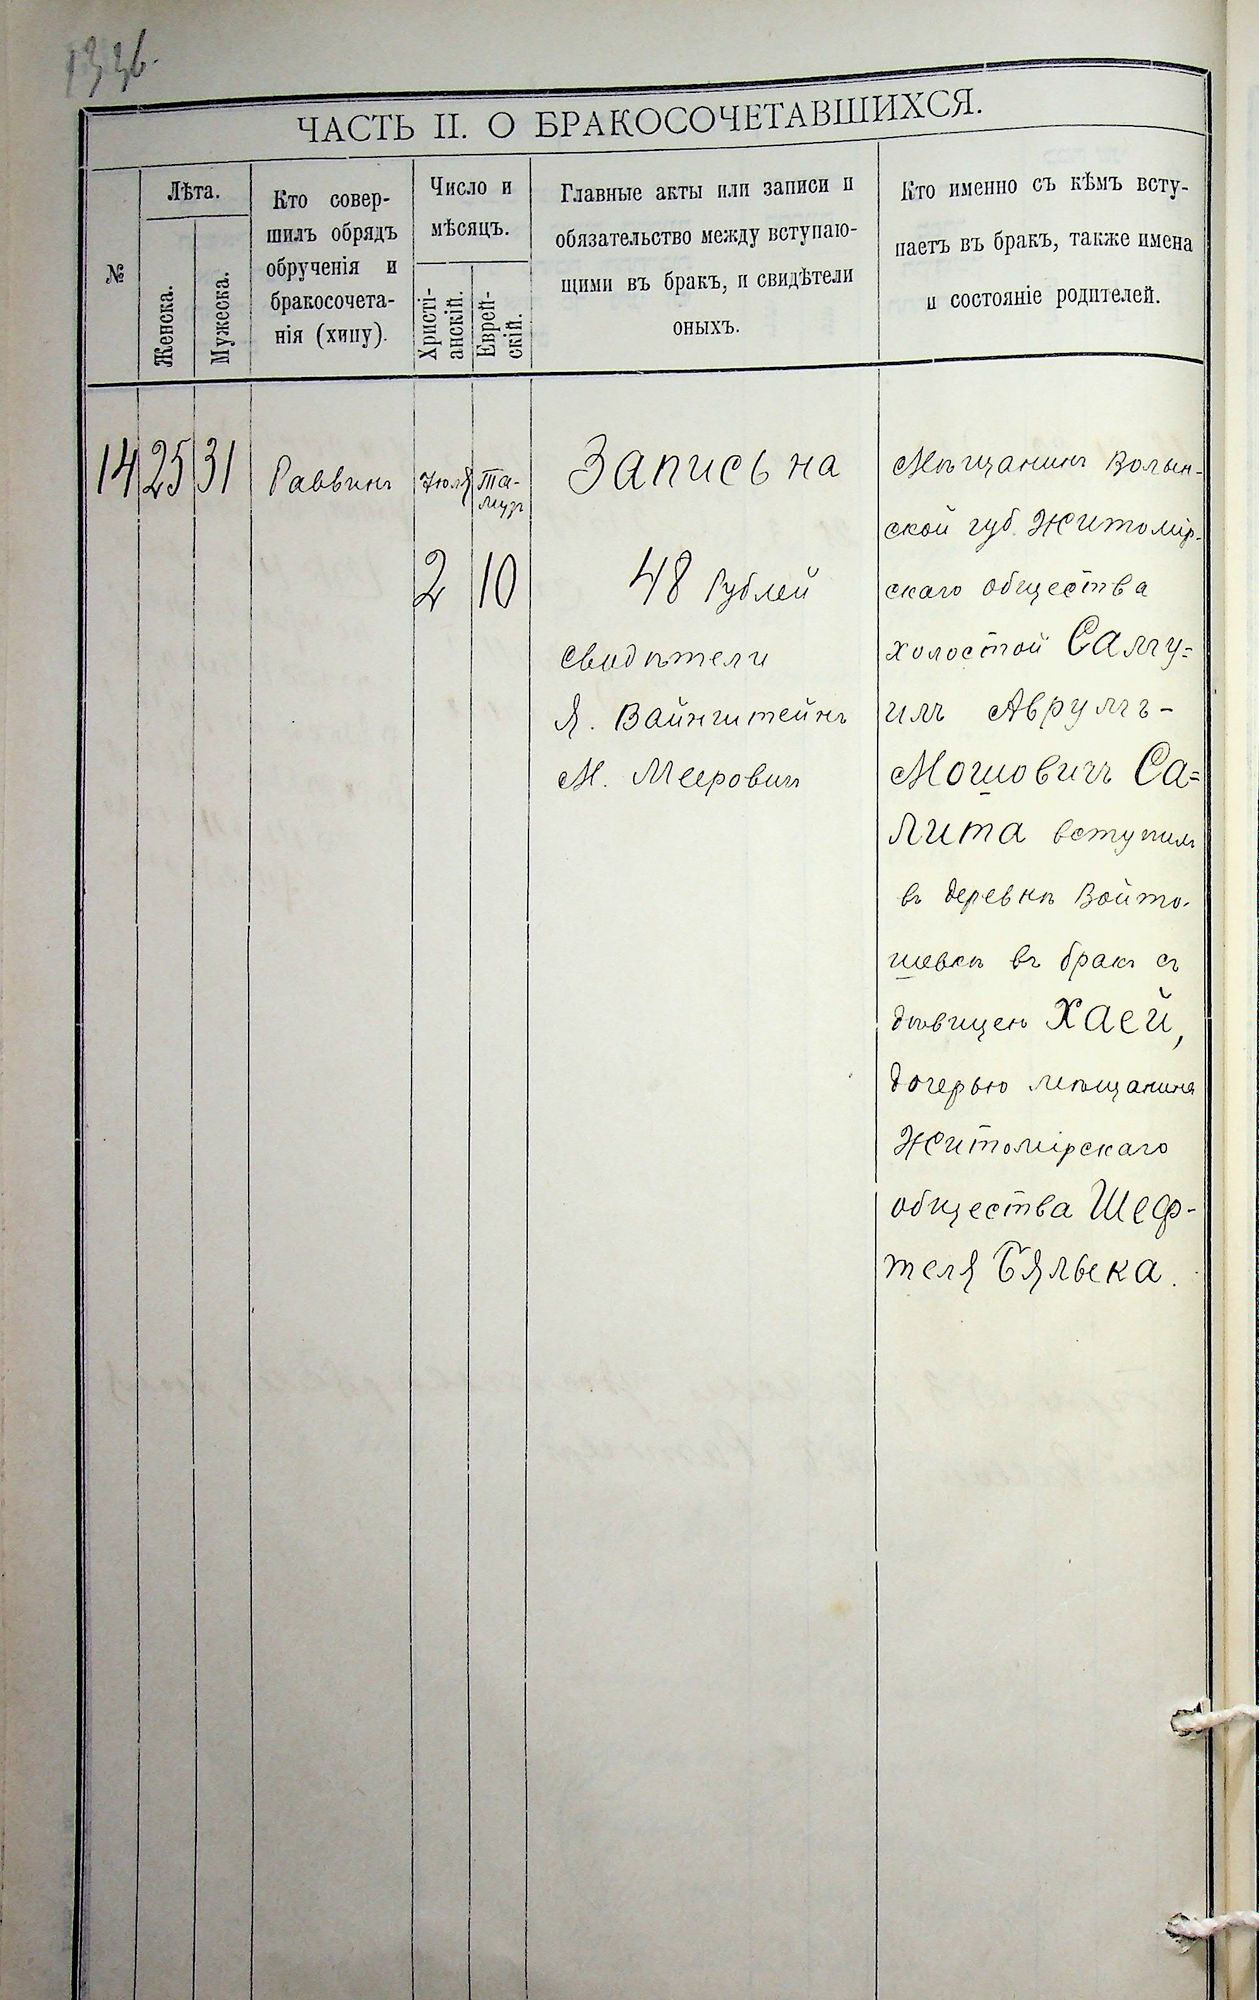 133б.
ЧАСТЬ II. О БРАКОСОЧЕТАВШИХСЯ.
№
Лѣта.
Женска.
Мужеска.
Кто совер-
шилъ обрядъ
обрученія и
бракосочета-
нія (хипу).
Число и
мѣсяцъ.
Христі-
анскій.
Еврей-
скій.
Главные акты или записи и
обязательство между вступаю-
щими въ бракъ, и свидѣтели
оныхъ.
Кто именно съ кѣмъ всту-
паетъ въ бракъ, также имена
и состояніе родителей.
14
25
31
Раввинъ
Іюля
2
Та-
музъ
10
Запись на
48 Рублей
свидѣтели
Я. Вайнштейнъ
М. Мееровичъ
Мѣщанинъ Волын-
ской губ. Житомір-
скаго общества
холостой Саму=
илъ Аврумъ-
Мошовичъ Са=
лита вступилъ
въ деревнѣ Войто-
шевкѣ въ бракъ съ
дѣвицею Хаей,
дочерью мѣщанина
Житомірскаго
общества Шеф-
теля Бяльека.